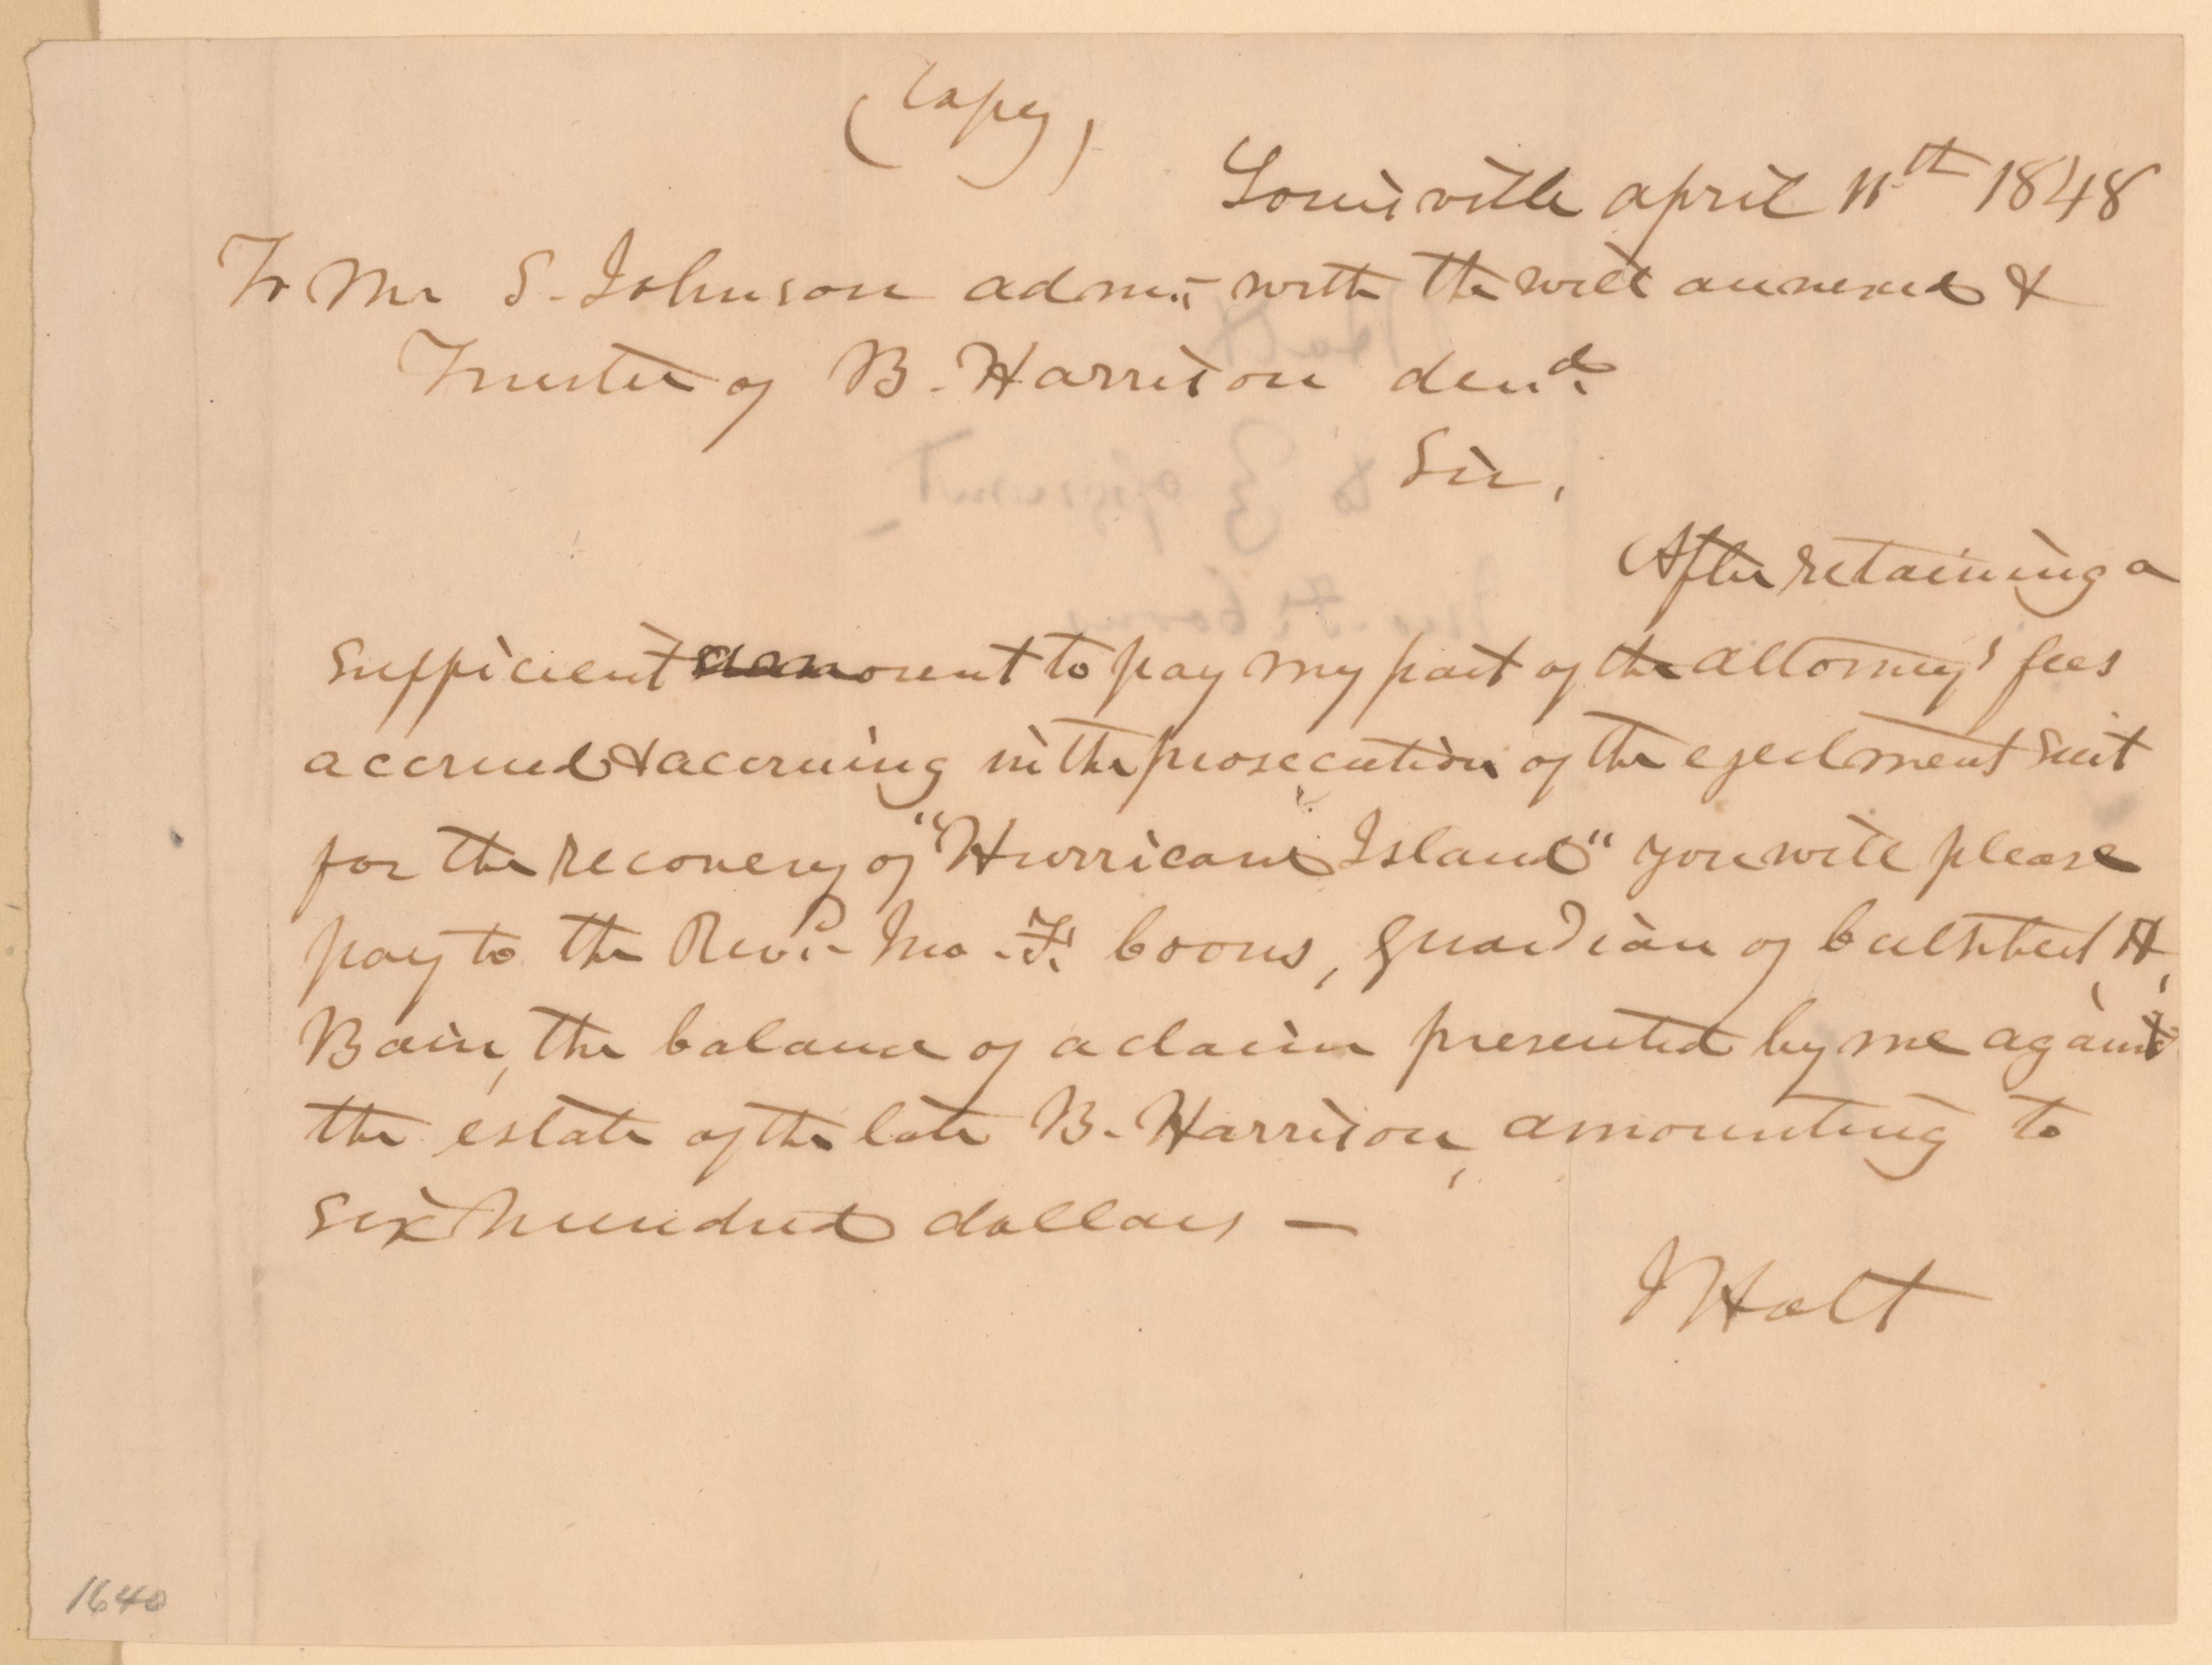 (Copy)
Louisville april 11th 1848
To Mr S. Johnson admr. with the will annexed &
Trustee of B. Harrison decd.
Sir,
After retaining a
sufficient amount to pay my part of the attorney's fees
accrued & accruing in the prosecution of the ejectment suit
for the recovery of "Hurricane Island" you will please
pay to the Revd. Jno. F. Coons, guardian of Cuthbert H,
Bain, the balance of a claim presented by me against
the estate of the late B. Harrison, amounting to
six hundred dollars —
J Holt
1640